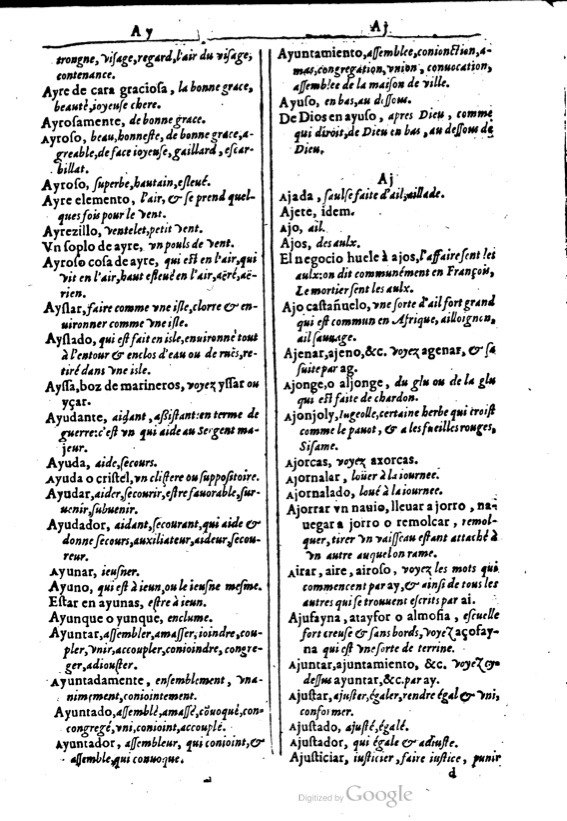 Ay
trongne, visage, regard, l'air du visage,
contenance.
Ayre de cara graciosa, la bonne grace,
beautè, ioyeuse chere.
Ayrosamente, de bonne grace.
Ayroso, beau, honneste, de bonne grace, a-
greable, de face ioyeuse, gaillard, escar-
billat.
Ayroso, superbe, hautain, esleué.
Ayre elemento, l'air, & se prend quel-
ques fois pour le vent.
Ayrezillo, ventelet, petit vent.
Vn soplo de ayre, vn pouls de vent.
Ayroso cosa de ayre, qui est en l'air, qui
vit en l'air, haut esleué en l'air, aëré, aë-
rien.
Ayslar, faire comme vne isle, clorre & en-
uironner comme vne isle.
Ayslado, qui est fait en isle, enuironné tout
à l'entour & enclos d'eau ou de ruës, re-
tiré dans vne isle.
Ayssa, boz de marineros, voyez yssar ou
yçar.
Ayudante, aidant, assistant: en terme de
guerre: c'est vn qui aide au Sergent ma-
jeur.
Ayuda, aide, secours.
Ayuda o cristel, vn clistere ou suppositoire.
Ayudar, aider, secourir, estre fauorable, sur-
uenir, subuenir.
Ayudador, aidant, secourant, qui aide &
donne secours, auxiliateur, aideur, secou-
reur.
Ayunar, ieusner.
Ayuno, qui est à ieun, ou le ieusne mesme.
Estar en ayunas, estre à ieun.
Ayunque o yunque, enclume.
Ayuntar, assembler, amasser, ioindre, cou-
pler, vnir, accoupler, conioindre, congre-
ger, adiouster.
Ayuntadamente, ensemblement, vna-
nimement, coniointement.
Ayuntado, assemblé, amassé, cõuoqué, con-
congregé, vni, conioint, accouplé.
Ayuntador, assembleur, qui conioint, &
assemble, qui conuoque.
Aj
Ayuntamiento, assemblee, conionction, a-
mas, congregation, vnion, conuocation,
assemblee de la maison de ville.
Ayuso, en bas, au dessous.
De Dios en ayuso, apres Dieu, comme
qui diroit, de Dieu en bas, au dessous de
Dieu.
Aj
Ajada, saulse faite d'ail, aillade.
Ajete, idem.
Ajo, ail.
Ajos, des aulx.
El negocio huele à ajos, l'affaire sent les
aulx: on dit communément en François,
Le mortier sent les aulx.
Ajo castañuelo, vne sorte d'ail fort grand
qui est commun en Afrique, ailloignon,
ail sauuage.
Ajenar, ajeno, &c. voyez agenar, & sa
suite par ag.
Ajonge, o aljonge, du glu ou de la glu
qui est faite de chardon.
Ajonjoly, Iugeolle, certaine herbe qui croist
comme le pauot, & a les fueilles rouges,
Sisame.
Ajorcas, voyez axorcas.
Ajornalar, loüer à la iournee.
Ajornalado, loué à la iournee.
Ajorrar vn nauio, lleuar a jorro, na-
uegar a jorro o remolcar, remol-
quer, tirer vn vaisseau estant attaché à
vn autre auquel on rame.
Airar, aire, airoso, voyez les mots qui
commencent par ay, & ainsi de tous les
autres qui se trouuent escrits par ai.
Ajufayna, atayfor o almofia, escuelle
fort creuse & sans bords, voyez açofay-
na qui est vne sorte de terrine.
Ajuntar, ajuntamiento, &c. voyez cy
dessus ayuntar, &c. par ay.
Ajustar, ajuster, égaler, rendre égal & vni,
conformer.
Ajustado, ajusté, égalé.
Ajustador, qui égale & adiuste.
Ajusticiar, iusticier, faire iustice, punir
d
Digitized by Google